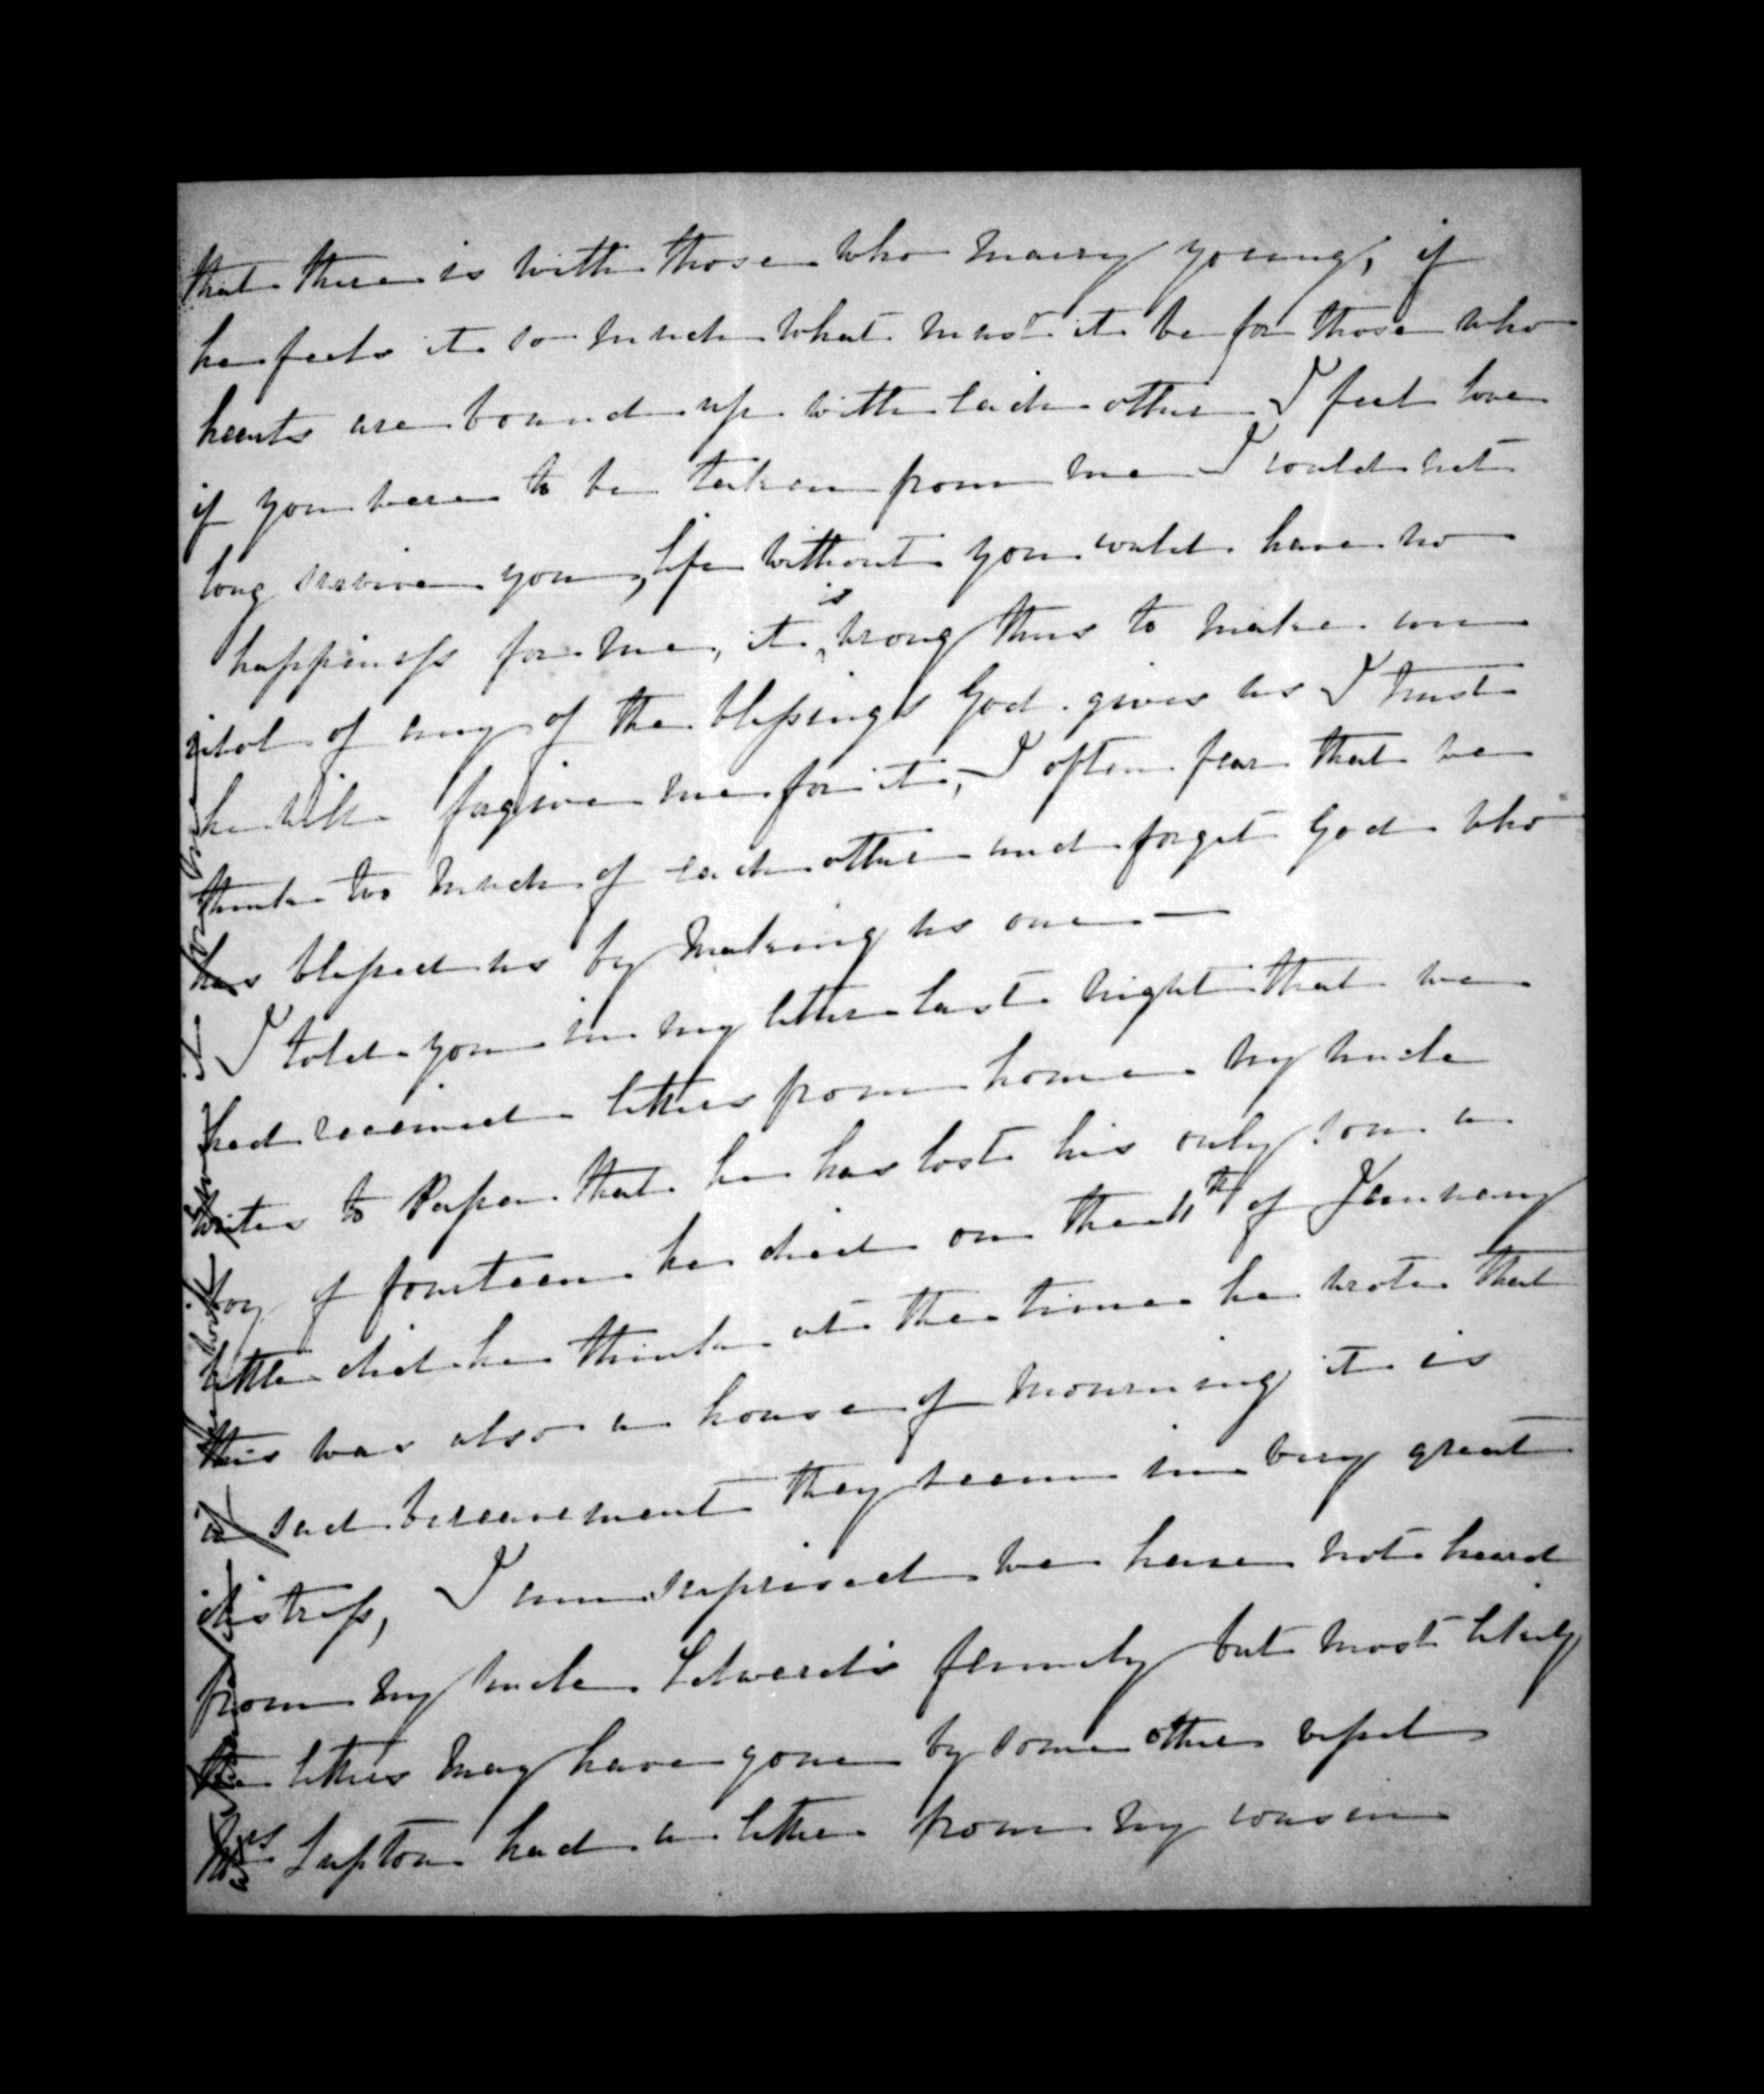 that there is with those who marry young, if
he feels it so much what must it be for those who
hearts are bound up with each other I feel love
if you were to be taken from me I could not
long survive you, life without you would have no
happiness for me, it is wrong thus to make an
idol of any of the blessings God gives us I trust
he will forgive me for it, I often fear that we
think too much of each other and forget God who
has blessed us by making us one —
I told you in my letter last night that we
had received letters from home my uncle
writes to Papa that he has lost his only son a
boy of fourteen he died on the 11th of January
little did he think at the time he wrote that
this was also a house of mourning it is
a sad bereavement they seem in very great
distress, I am surprised we have not heard
from my uncle Edward's family but most likely
the letters may have gone by some other vessel
Mrs Lupton had a letter from my cousin